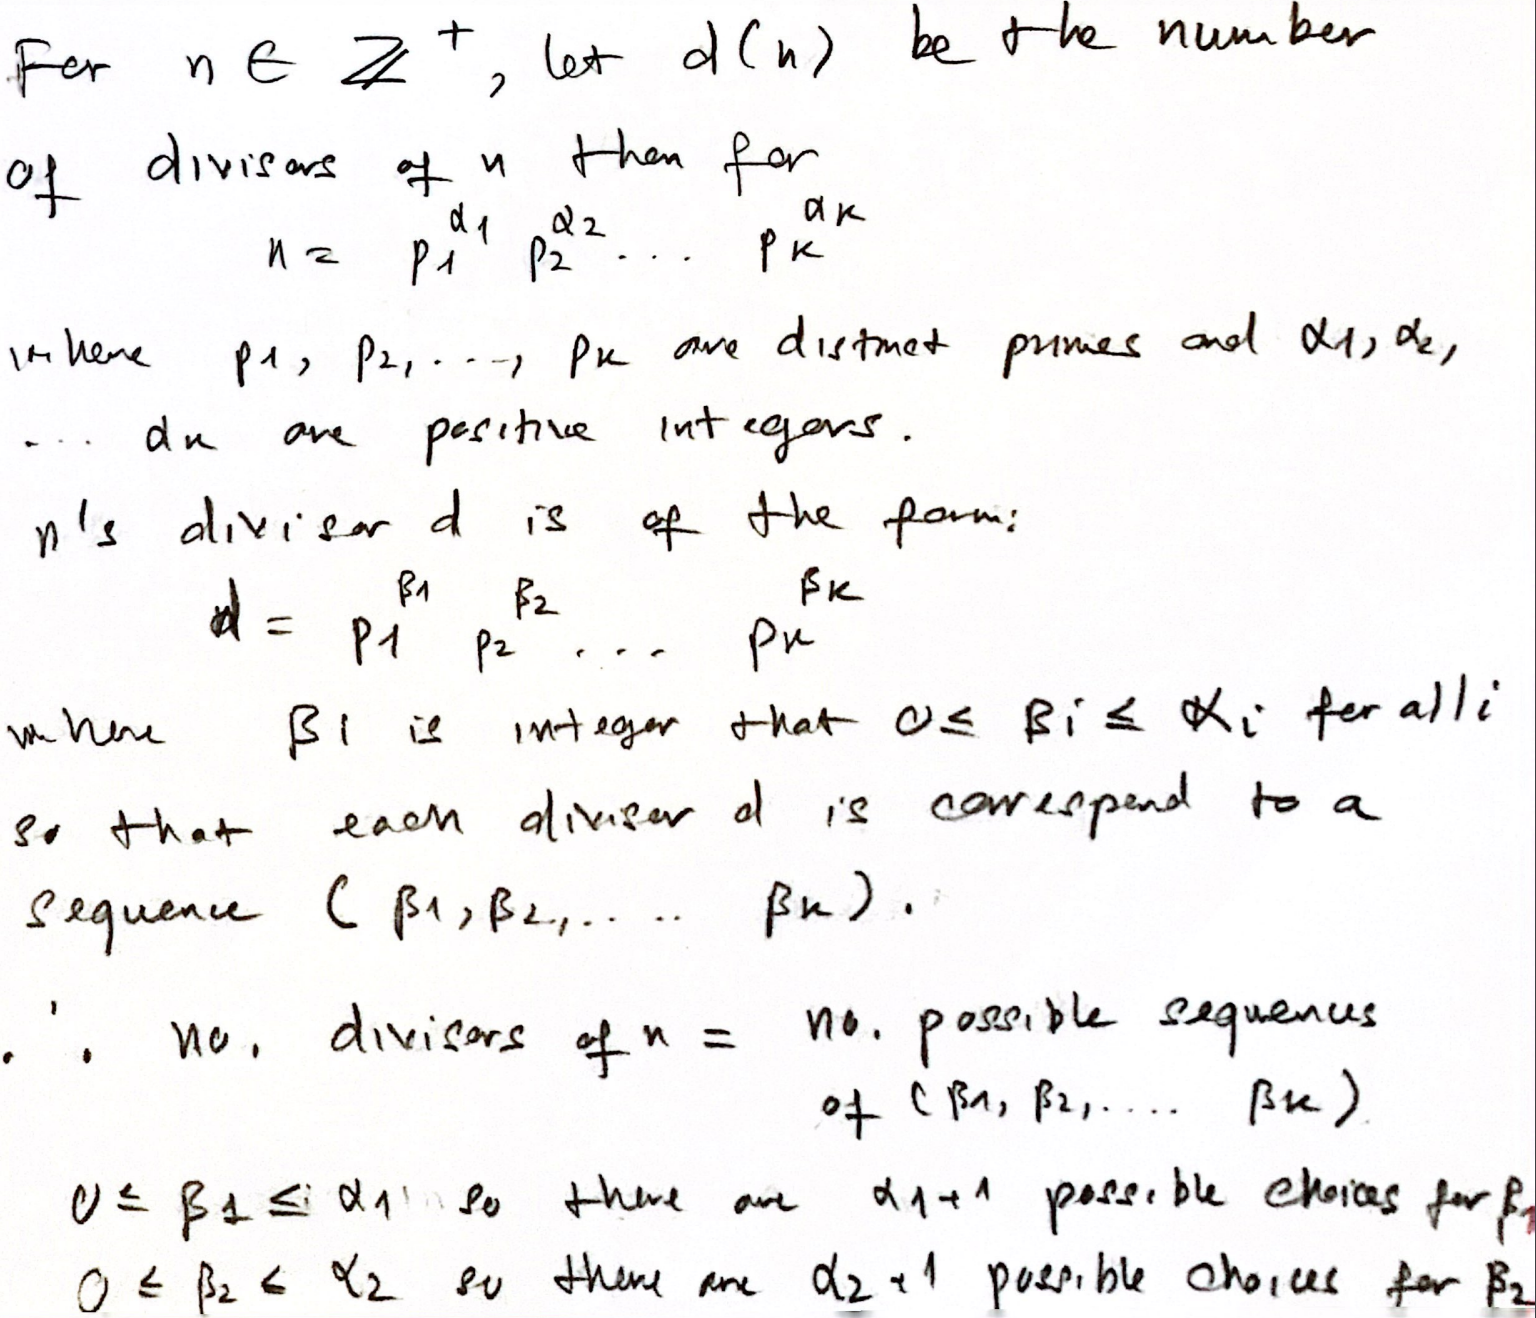 For n ∈ ℤ⁺, let d(n) be the number
of divisors of n then for
n = p1^α1 p2^α2 ... pk^αk
where p1, p2, ..., pk are distinct primes and α1, α2,
... αk are positive integers.
n's divisor d is of the form:
d = p1^β1 p2^β2 ... pk^βk
where βi is integer that 0 ≤ βi ≤ αi for all i
so that each divisor d is correspond to a
sequence (β1, β2, ..... βk).
∴ no. divisors of n = no. possible sequences
of (β1, β2, .... βk)
0 ≤ β1 ≤ α1 so there are α1+1 possible choices for β1
0 ≤ β2 ≤ α2 so there are α2+1 possible choices for β2